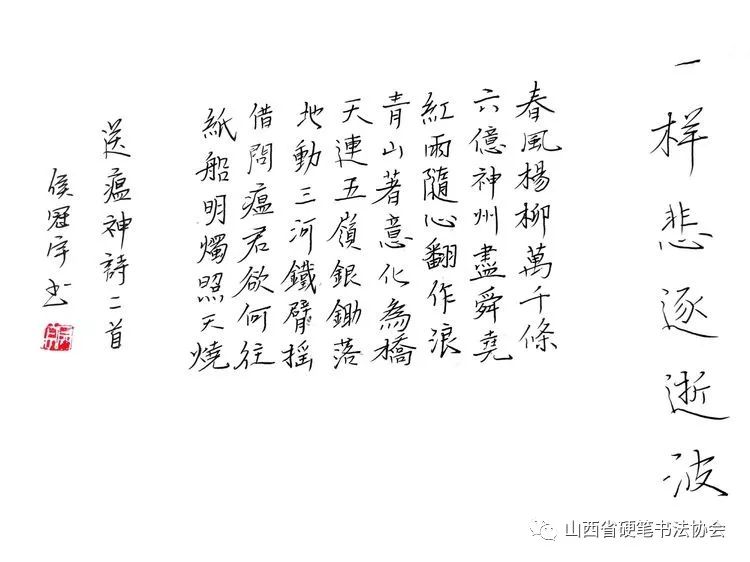 一样悲逐逝波
春風楊柳萬千條
六億神州盡舜堯
紅雨隨心翻作浪
青山著意化為橋
天連五嶺銀鋤落
地動三河鐵臂摇
借問瘟君欲何往
紙船明燭照天燒
送瘟神詩二首
侯冠宇书
山西省硬笔书法协会